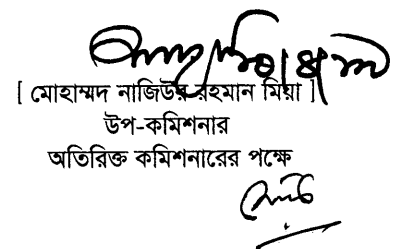 [ মোহাম্মদ নাজিউর রহমান মিয়া ]
উপ-কমিশনার
অতিরিক্ত কমিশনারের পক্ষে